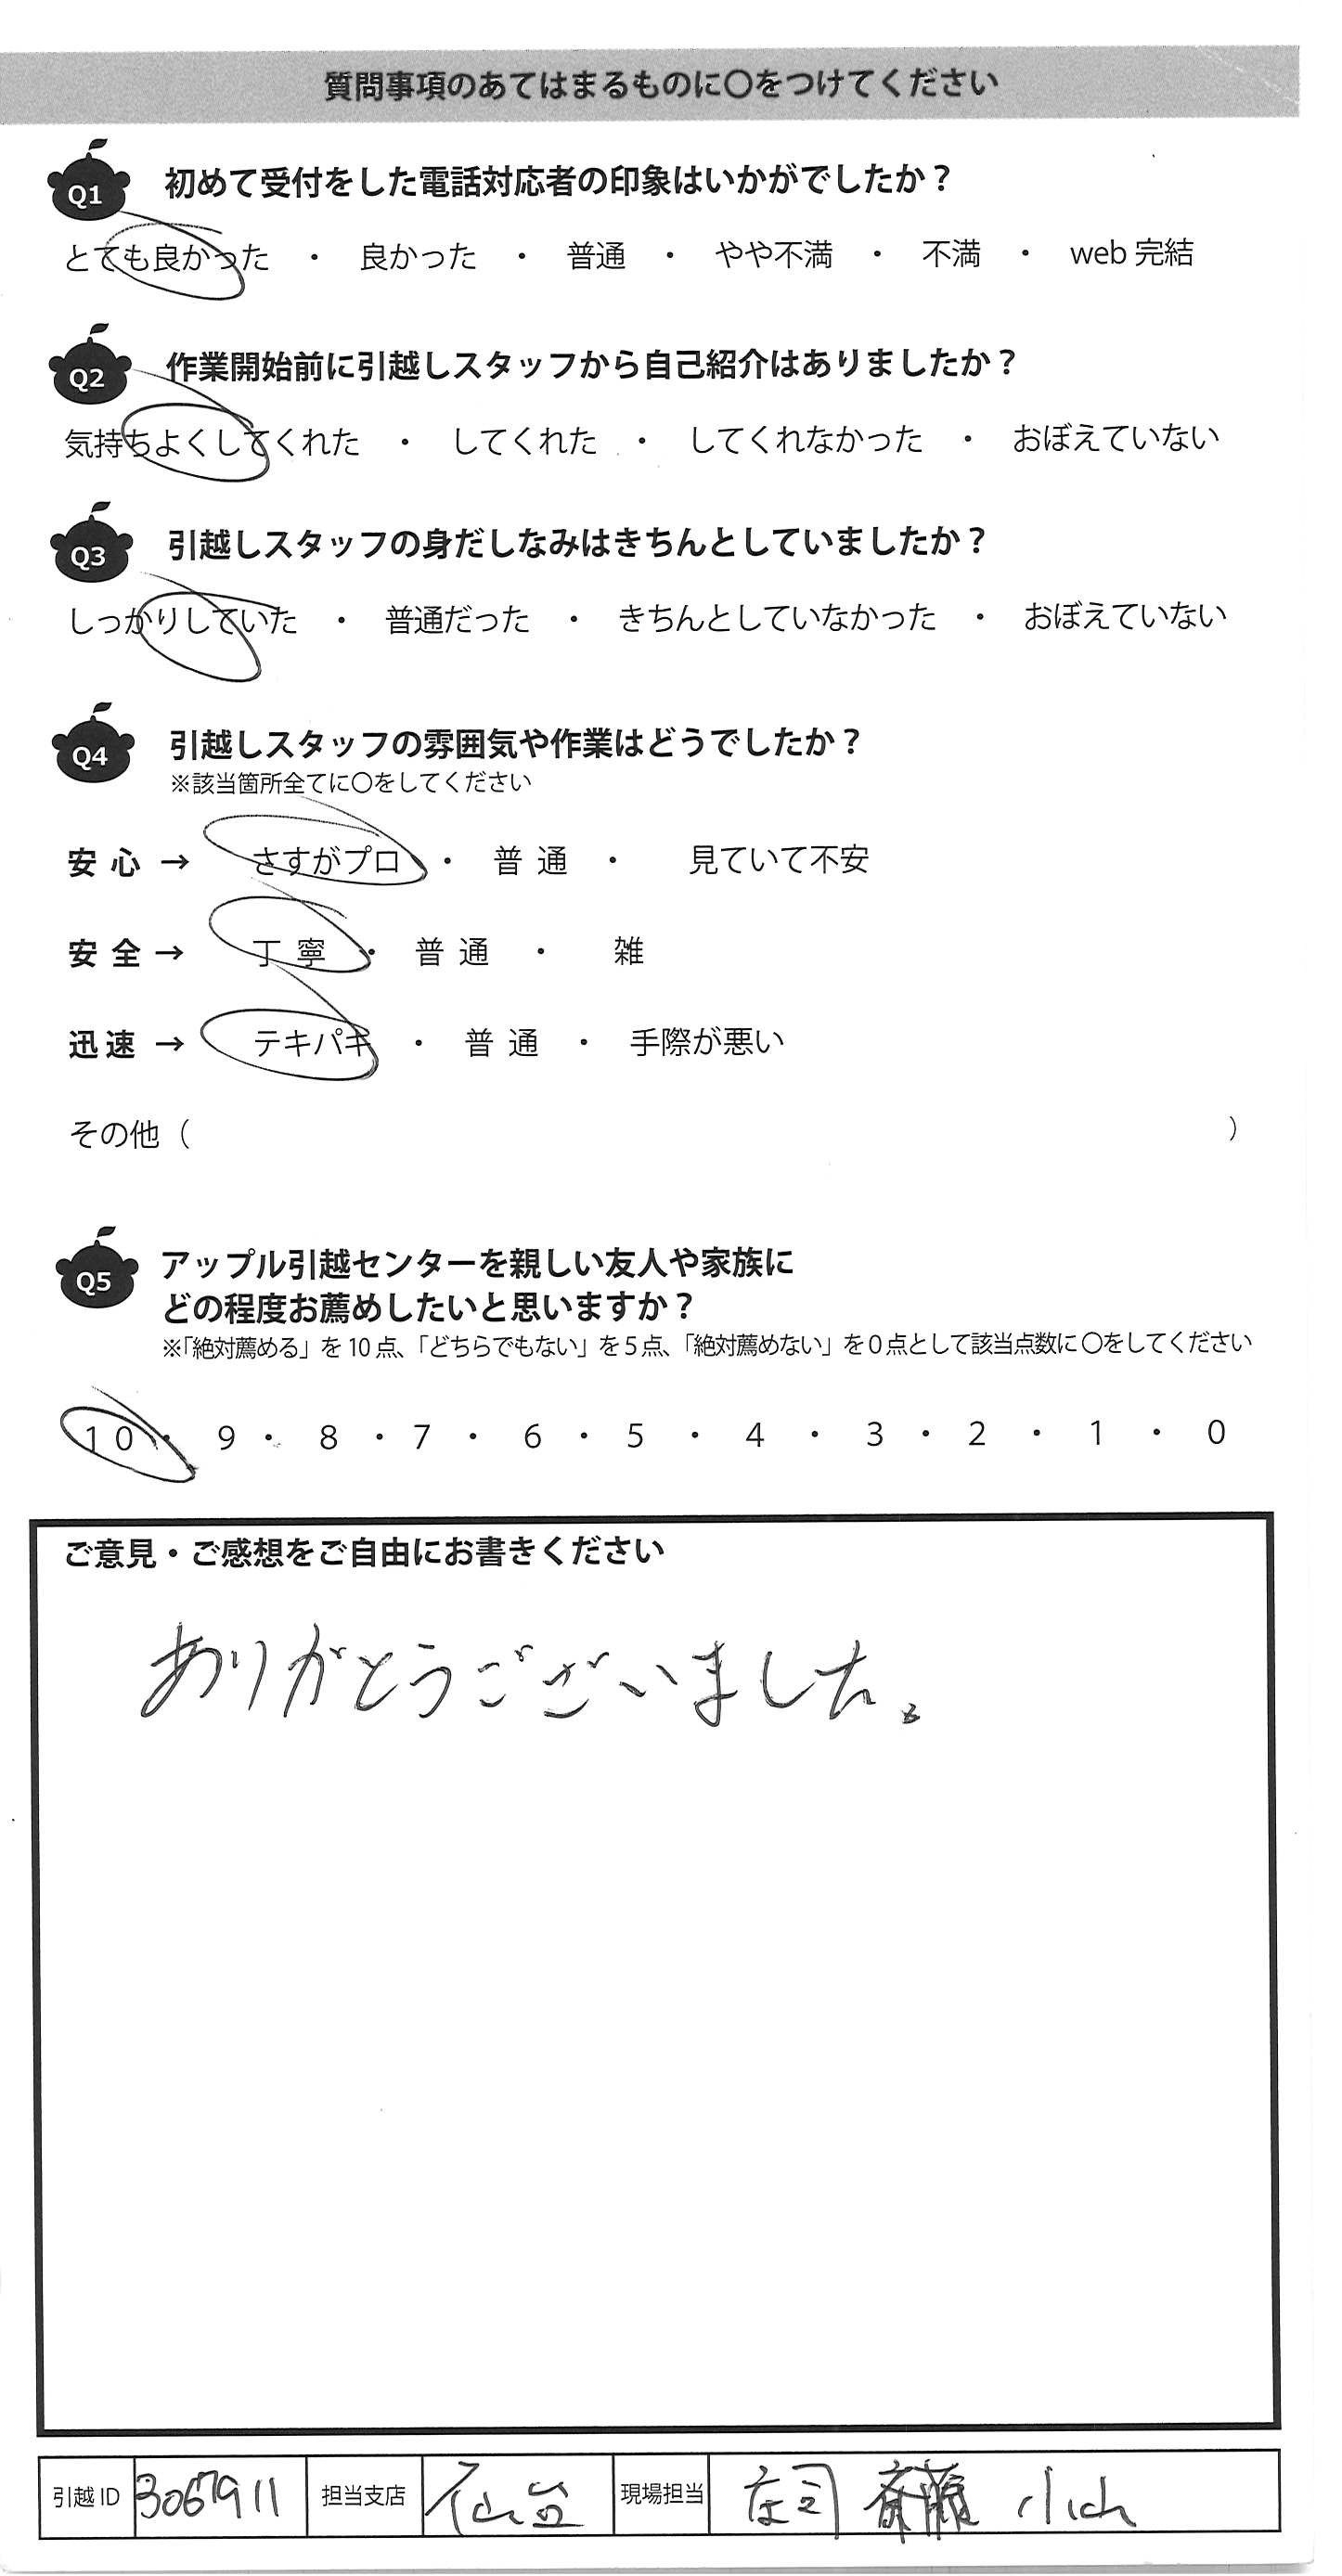 質問事項のあてはまるものに〇をつけてください
Q1 初めて受付をした電話対応者の印象はいかがでしたか？
とても良かった ・ 良かった ・ 普通 ・ やや不満 ・ 不満 ・ web 完結
Q2 作業開始前に引越しスタッフから自己紹介はありましたか？
気持ちよくしてくれた ・ してくれた ・ してくれなかった ・ おぼえていない
Q3 引越しスタッフの身だしなみはきちんとしていましたか？
しっかりしていた ・ 普通だった ・ きちんとしていなかった ・ おぼえていない
Q4 引越しスタッフの雰囲気や作業はどうでしたか？
※該当箇所全てに〇をしてください
安心 → さすがプロ ・ 普通 ・ 見ていて不安
安全 → 丁寧 ・ 普通 ・ 雑
迅速 → テキパキ ・ 普通 ・ 手際が悪い
その他（ ）
Q5 アップル引越センターを親しい友人や家族に
どの程度お薦めしたいと思いますか？
※「絶対薦める」を 10 点、「どちらでもない」を 5 点、「絶対薦めない」を 0 点として該当点数に 〇をしてください
10 ・ 9 ・ 8 ・ 7 ・ 6 ・ 5 ・ 4 ・ 3 ・ 2 ・ 1 ・ 0
ご意見・ご感想をご自由にお書きください
ありがとうございました。
引越 ID 3067911 担当支店 仙台 現場担当 庄司 斎藤 小山